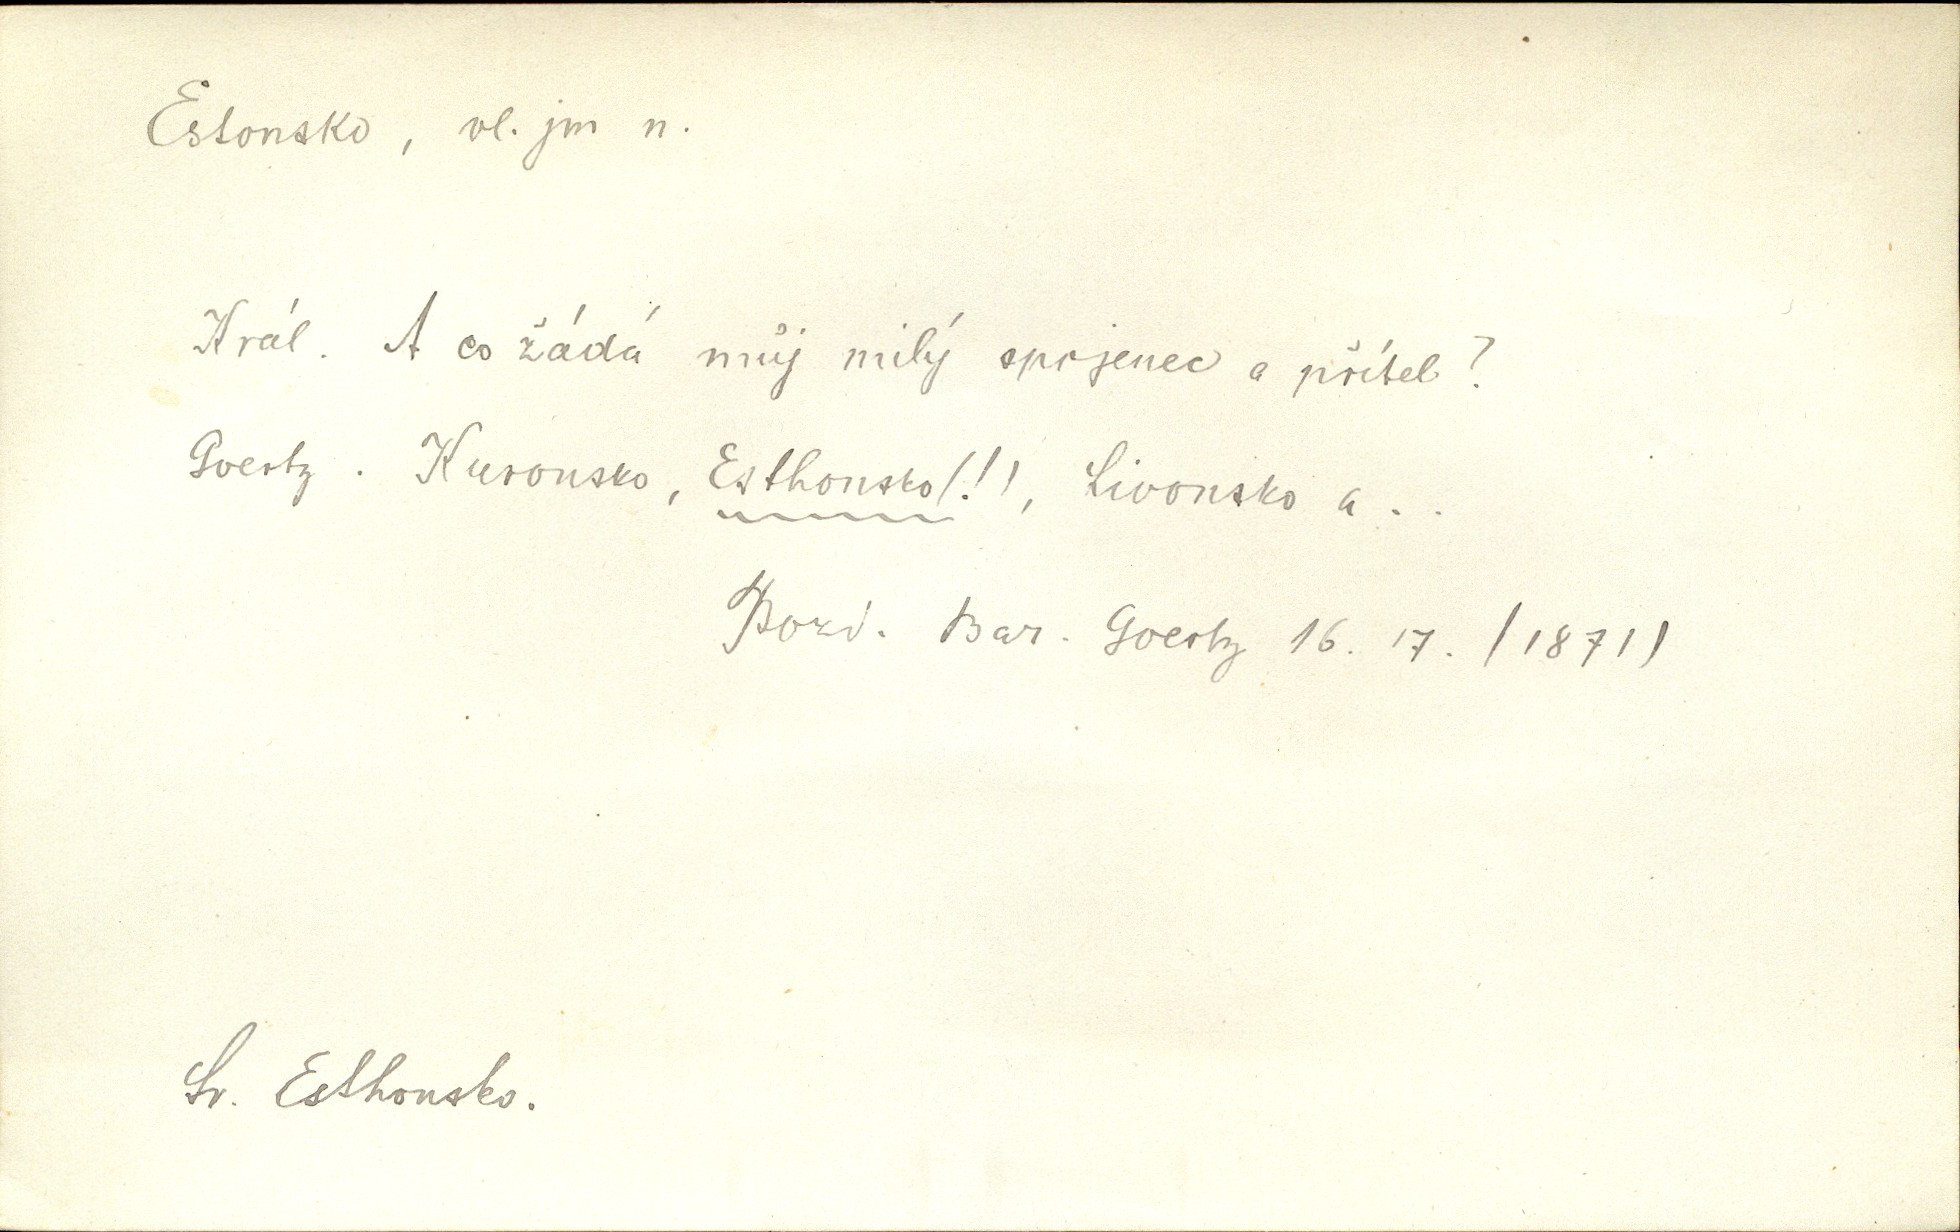 Estonsko, vl. jm n.
Král. A co žádá můj milý spojenec a přítel?
Goertz. Kuronsko, Esthonsko(!), Livonsko a ..
Bozd. Bar. Goertz 16. 17. (1871)
Sr. Esthonsko.